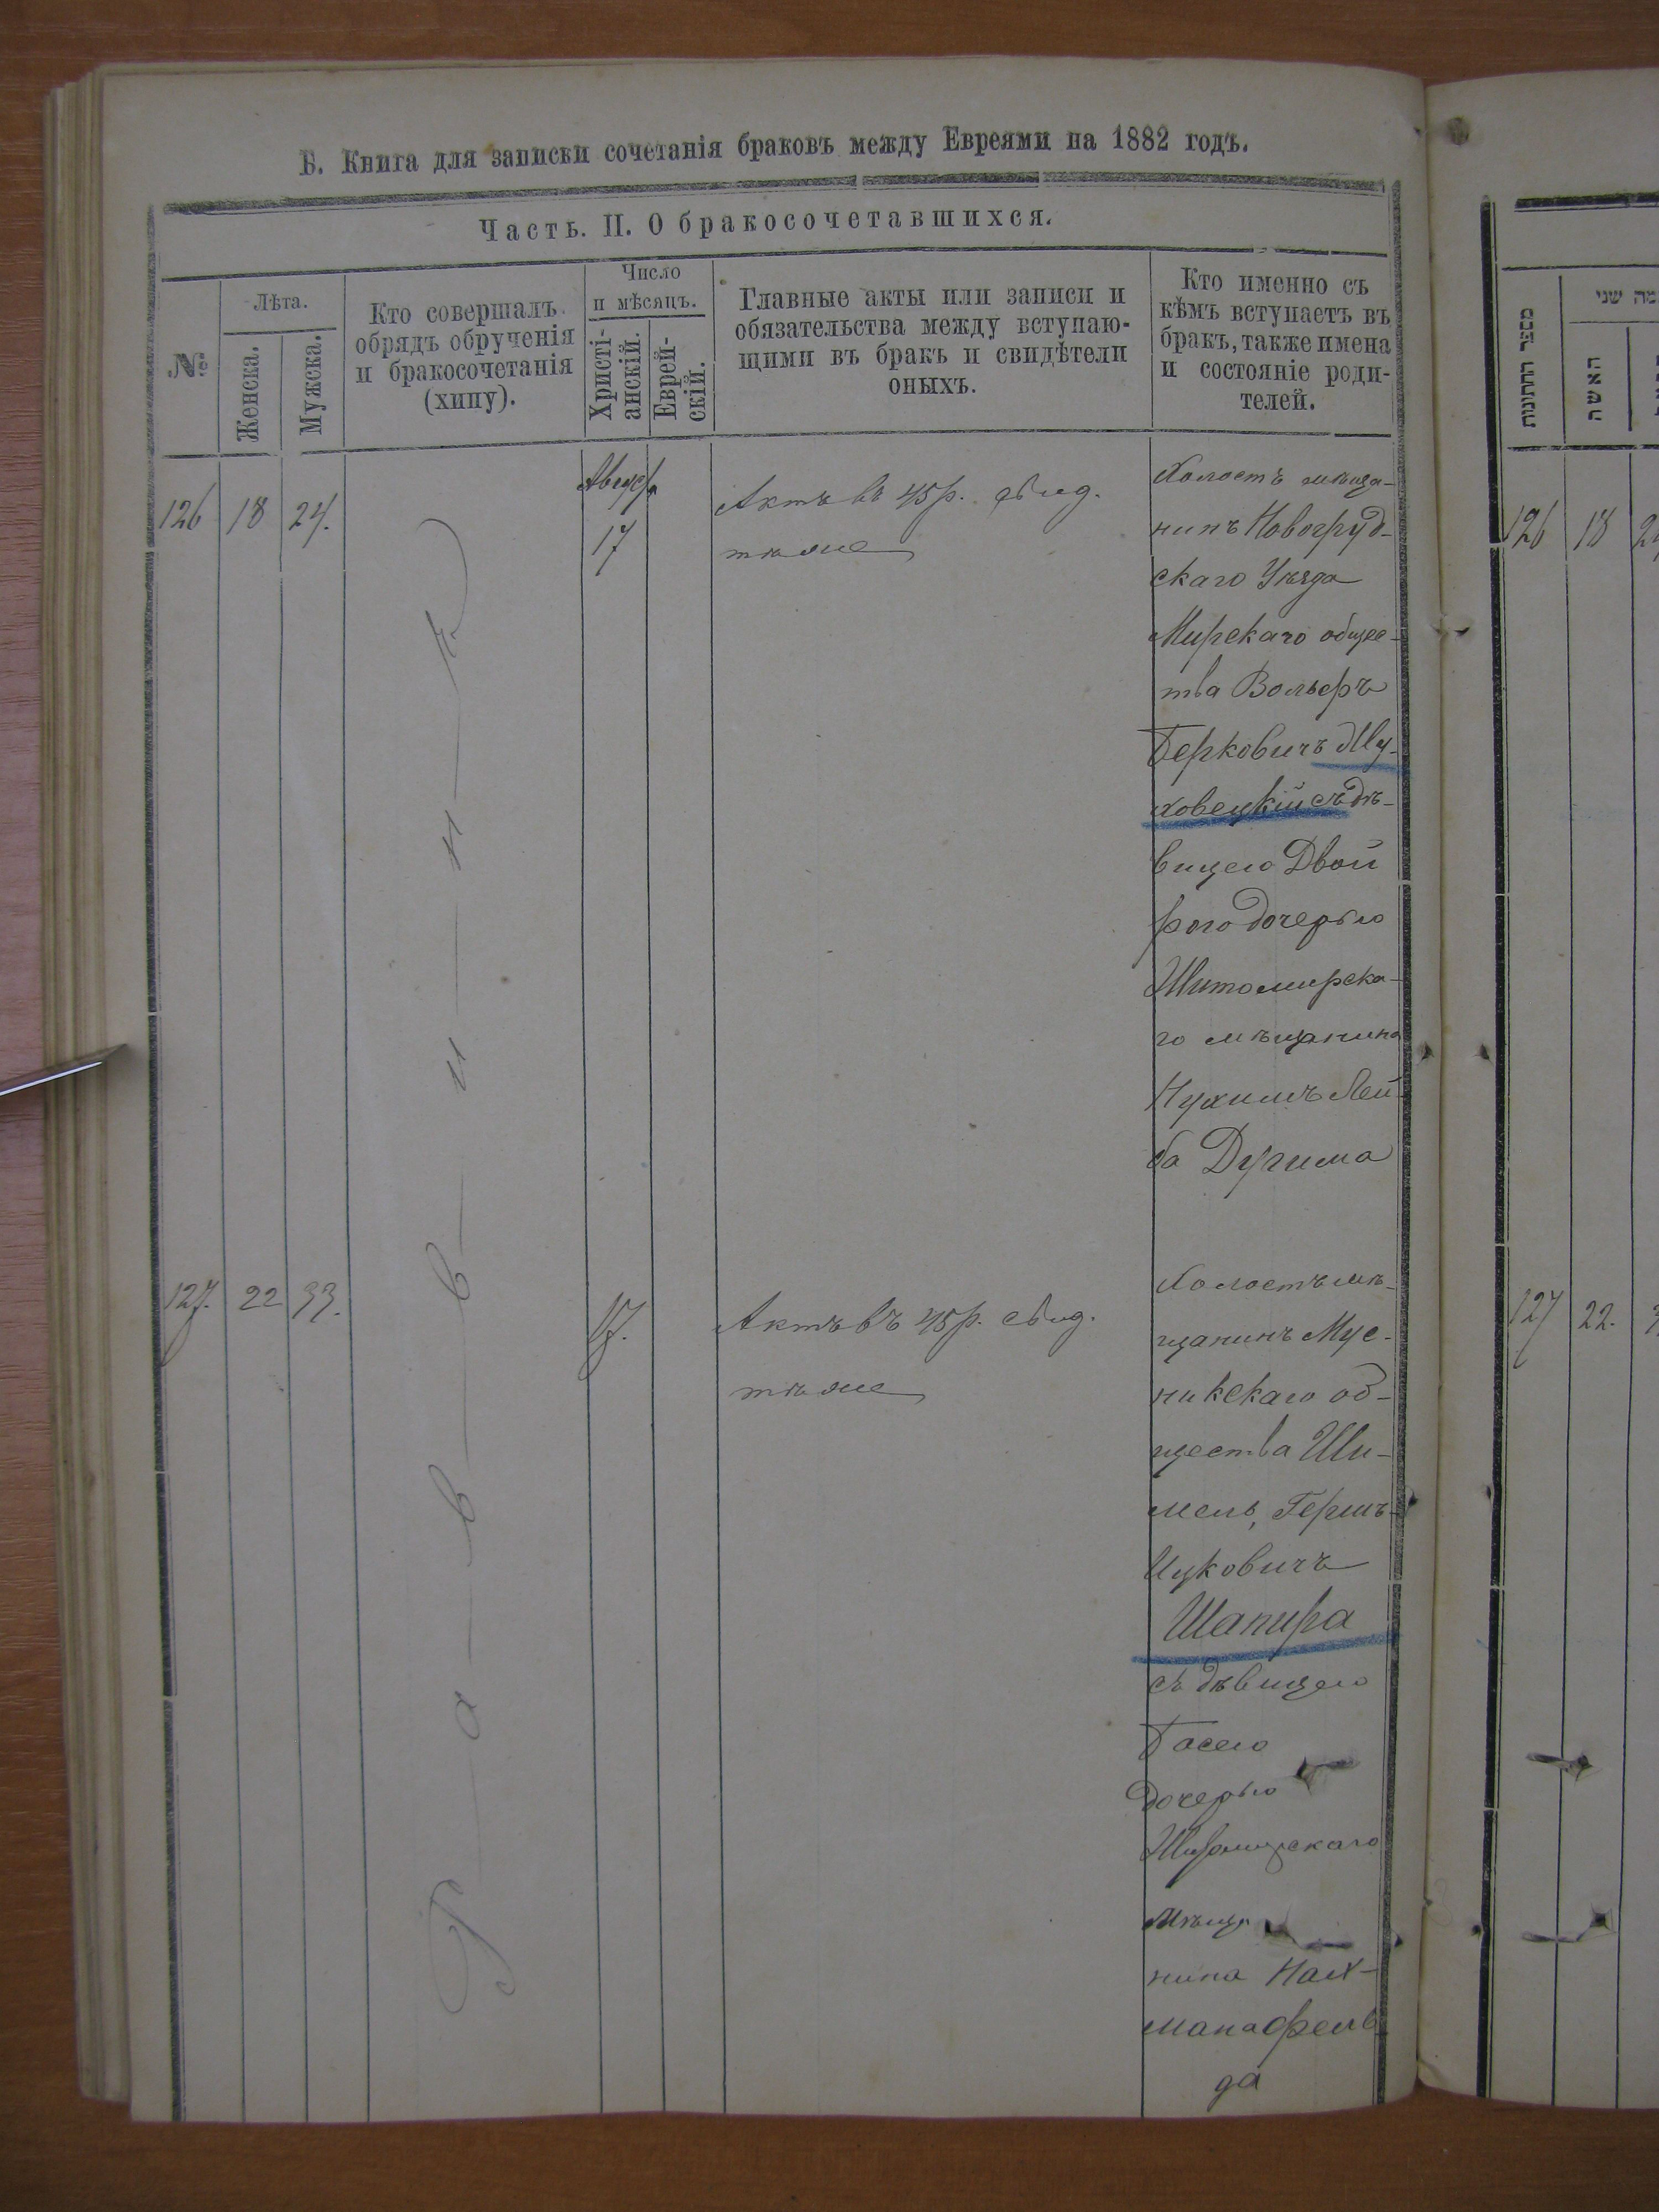 Б. Книга для записки сочетанія браковъ между Евреями на 1882 годъ.
Часть. II. О бракосочетавшихся.
№
Лѣта.
Женска.
Мужска.
Кто совершалъ
обрядъ обрученія
и бракосочетанія
(хипу).
Число
и мѣсяцъ.
Христі-
анскій.
Еврей-
скій.
Главные акты или записи и
обязательства между вступаю-
щими въ бракъ и свидѣтели
оныхъ.
Кто именно съ
кѣмъ вступаетъ въ
бракъ, также имена
и состояніе роди-
телей.
126 18 24.
Раввинъ
Август
17
Актъ въ 45 р. свид.
тѣ же
Холостъ мѣща-
нинъ Новогруд-
скаго Уѣзда
Мирскаго общес-
тва Вольфъ
Берковичъ Му-
ховецкій съ дѣ-
вицею Двой
рою дочерью
Житомирска-
го мѣщанина
Нухимъ Лей-
ба Дугима
127. 22 33.
17.
Актъ въ 45 р. свид.
тѣ же
Холостъ мѣ-
щанинъ Мус-
никскаго об-
щества Ши-
мель, Гершъ-
Ицковичъ
Шапира
съ дѣвицею
Басею
дочерью
Житомирскаго
мѣща
нина Нах-
мана Фель
да
מספר החתונות
מה שני
האשה
126 18
127 22.